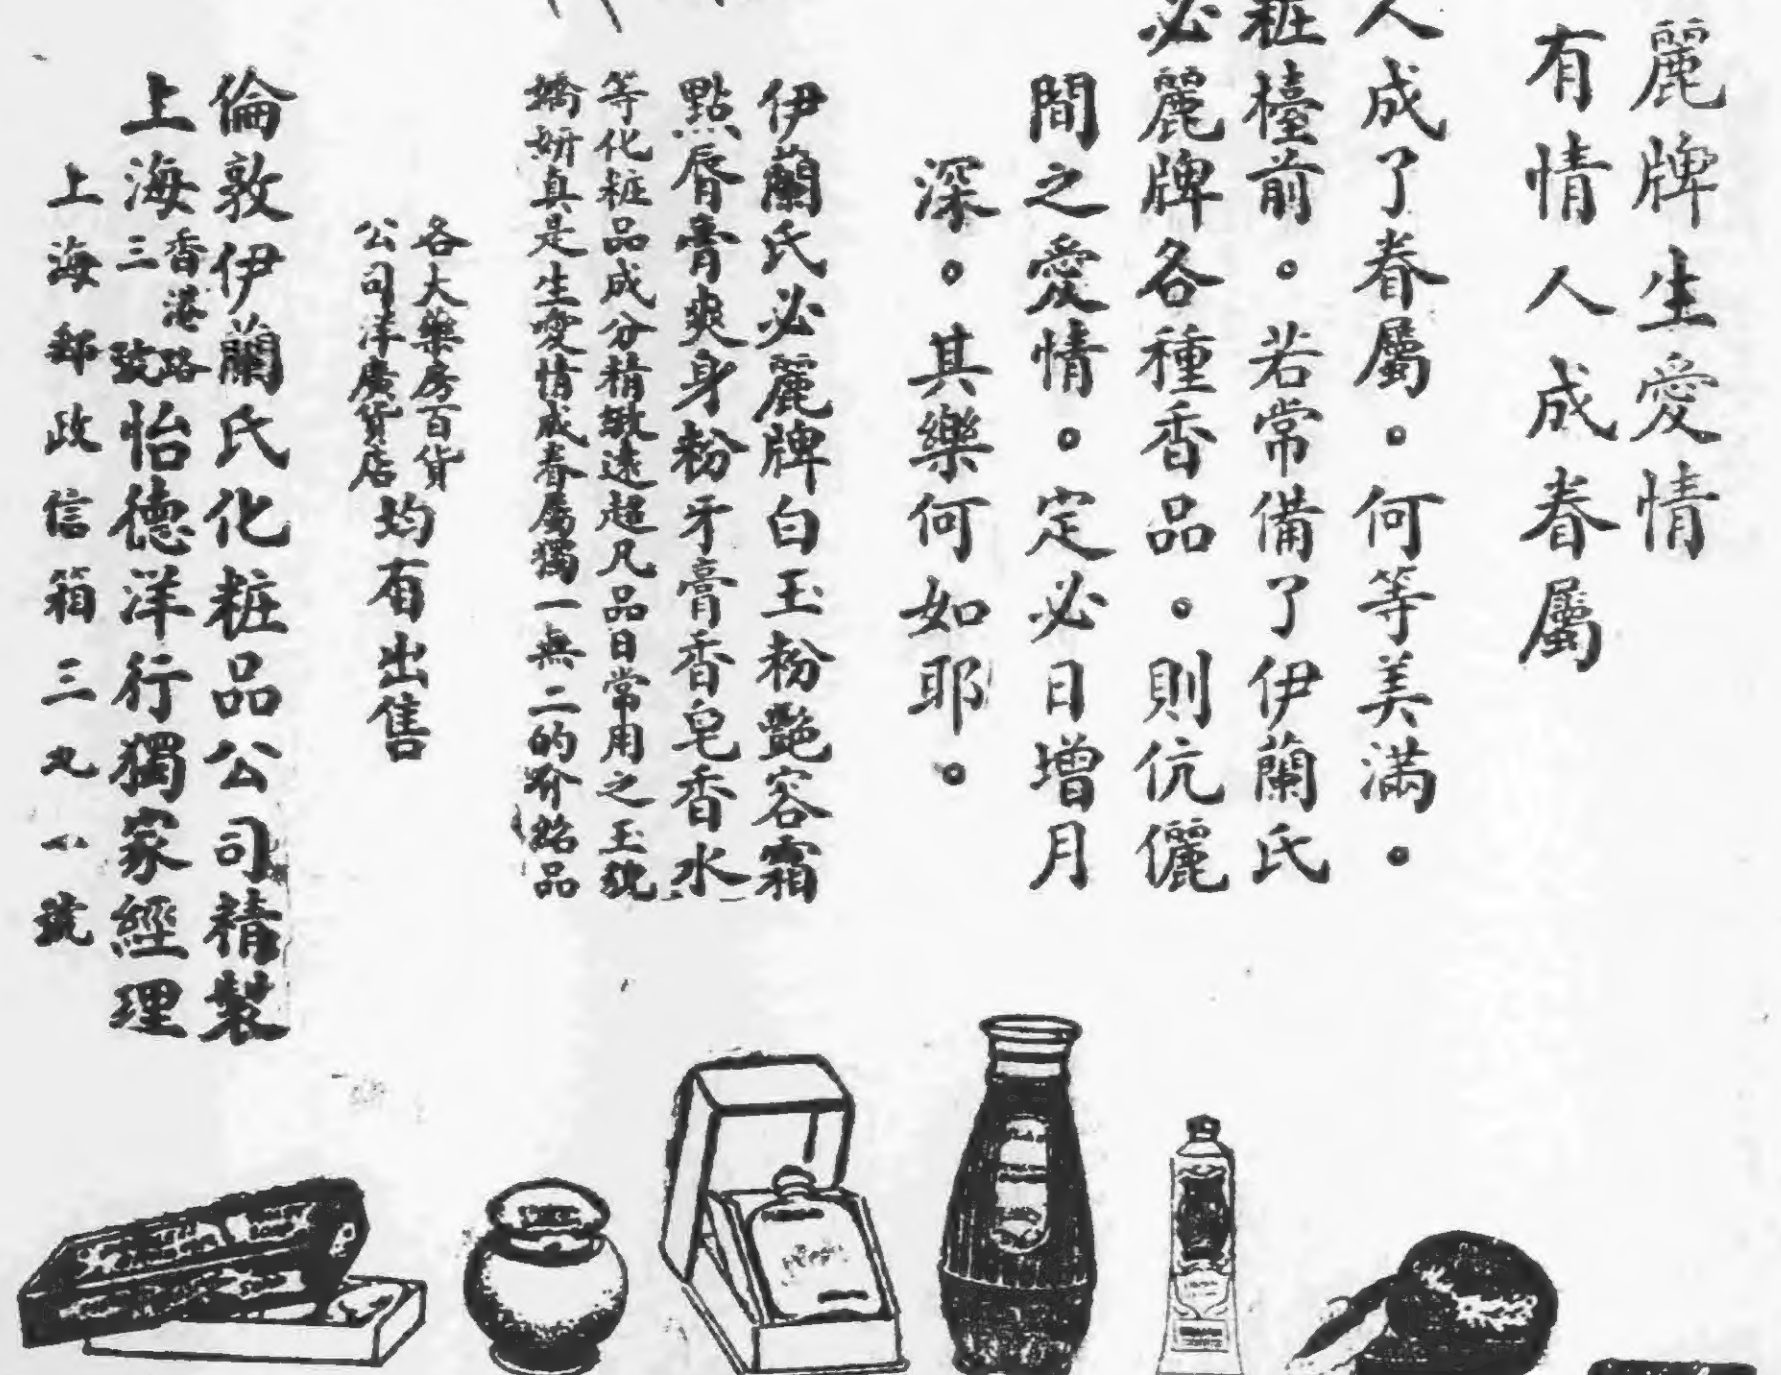 麗牌生愛情
有情人成眷屬
人成了眷屬。何等美滿。
粧檯前。若常備了伊蘭氏
必麗牌各種香品。則伉儷
間之愛情。定必日增月
深。其樂何如耶。
伊蘭氏必麗牌白玉粉艷容霜
點唇膏爽身粉牙膏香皂香水
等化粧品成分精緻遠超凡品日常用之玉貌
嬌妍真是生愛情成眷屬獨一無二的介紹品
各大藥房百貨
公司洋廣貨店
均有出售
倫敦伊蘭氏化粧品公司精製
上海香港路三號怡德洋行獨家經理
上海郵政信箱三九一號